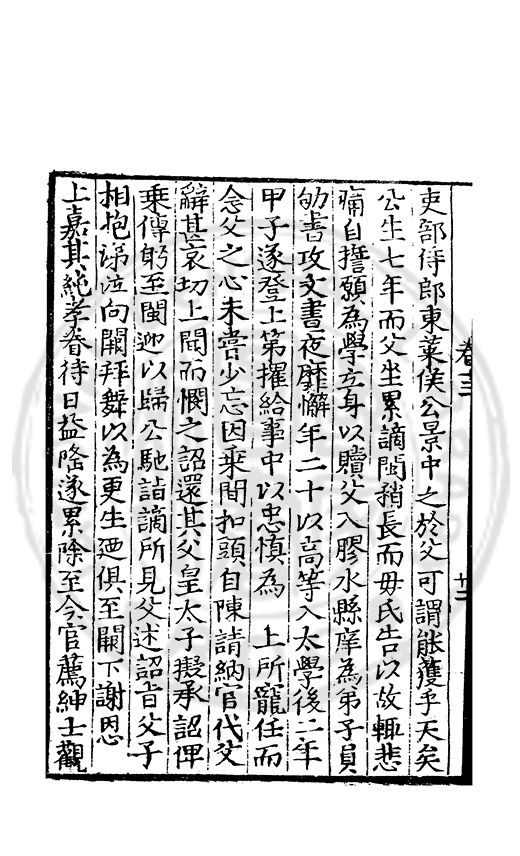 吏部侍郎東萊侯公景中之於父可謂能獲乎天矣
公生七年而父坐累謫閩稍長而毋氏告以故輒悲
痛自誓願為學立身以贖父入膠水縣庠為弟子員
劬書攻文晝夜靡懈年二十以高等入太學後二年
甲子遂登上第擢給事中以忠慎為 上所寵任而
念父之心未嘗少忘因乘間扣頭自陳請納官代父
辭甚哀切上聞而憫之詔還其父皇太子擬承詔俾
乘傳躬至閩迎以歸公馳詣謫所見父述詔旨父子
相抱涕泣向闕拜舞以為更生廼俱至闕下謝恩
上嘉其純孝眷待日益隆遂累除至今官薦紳士觀
卷十三
廿二